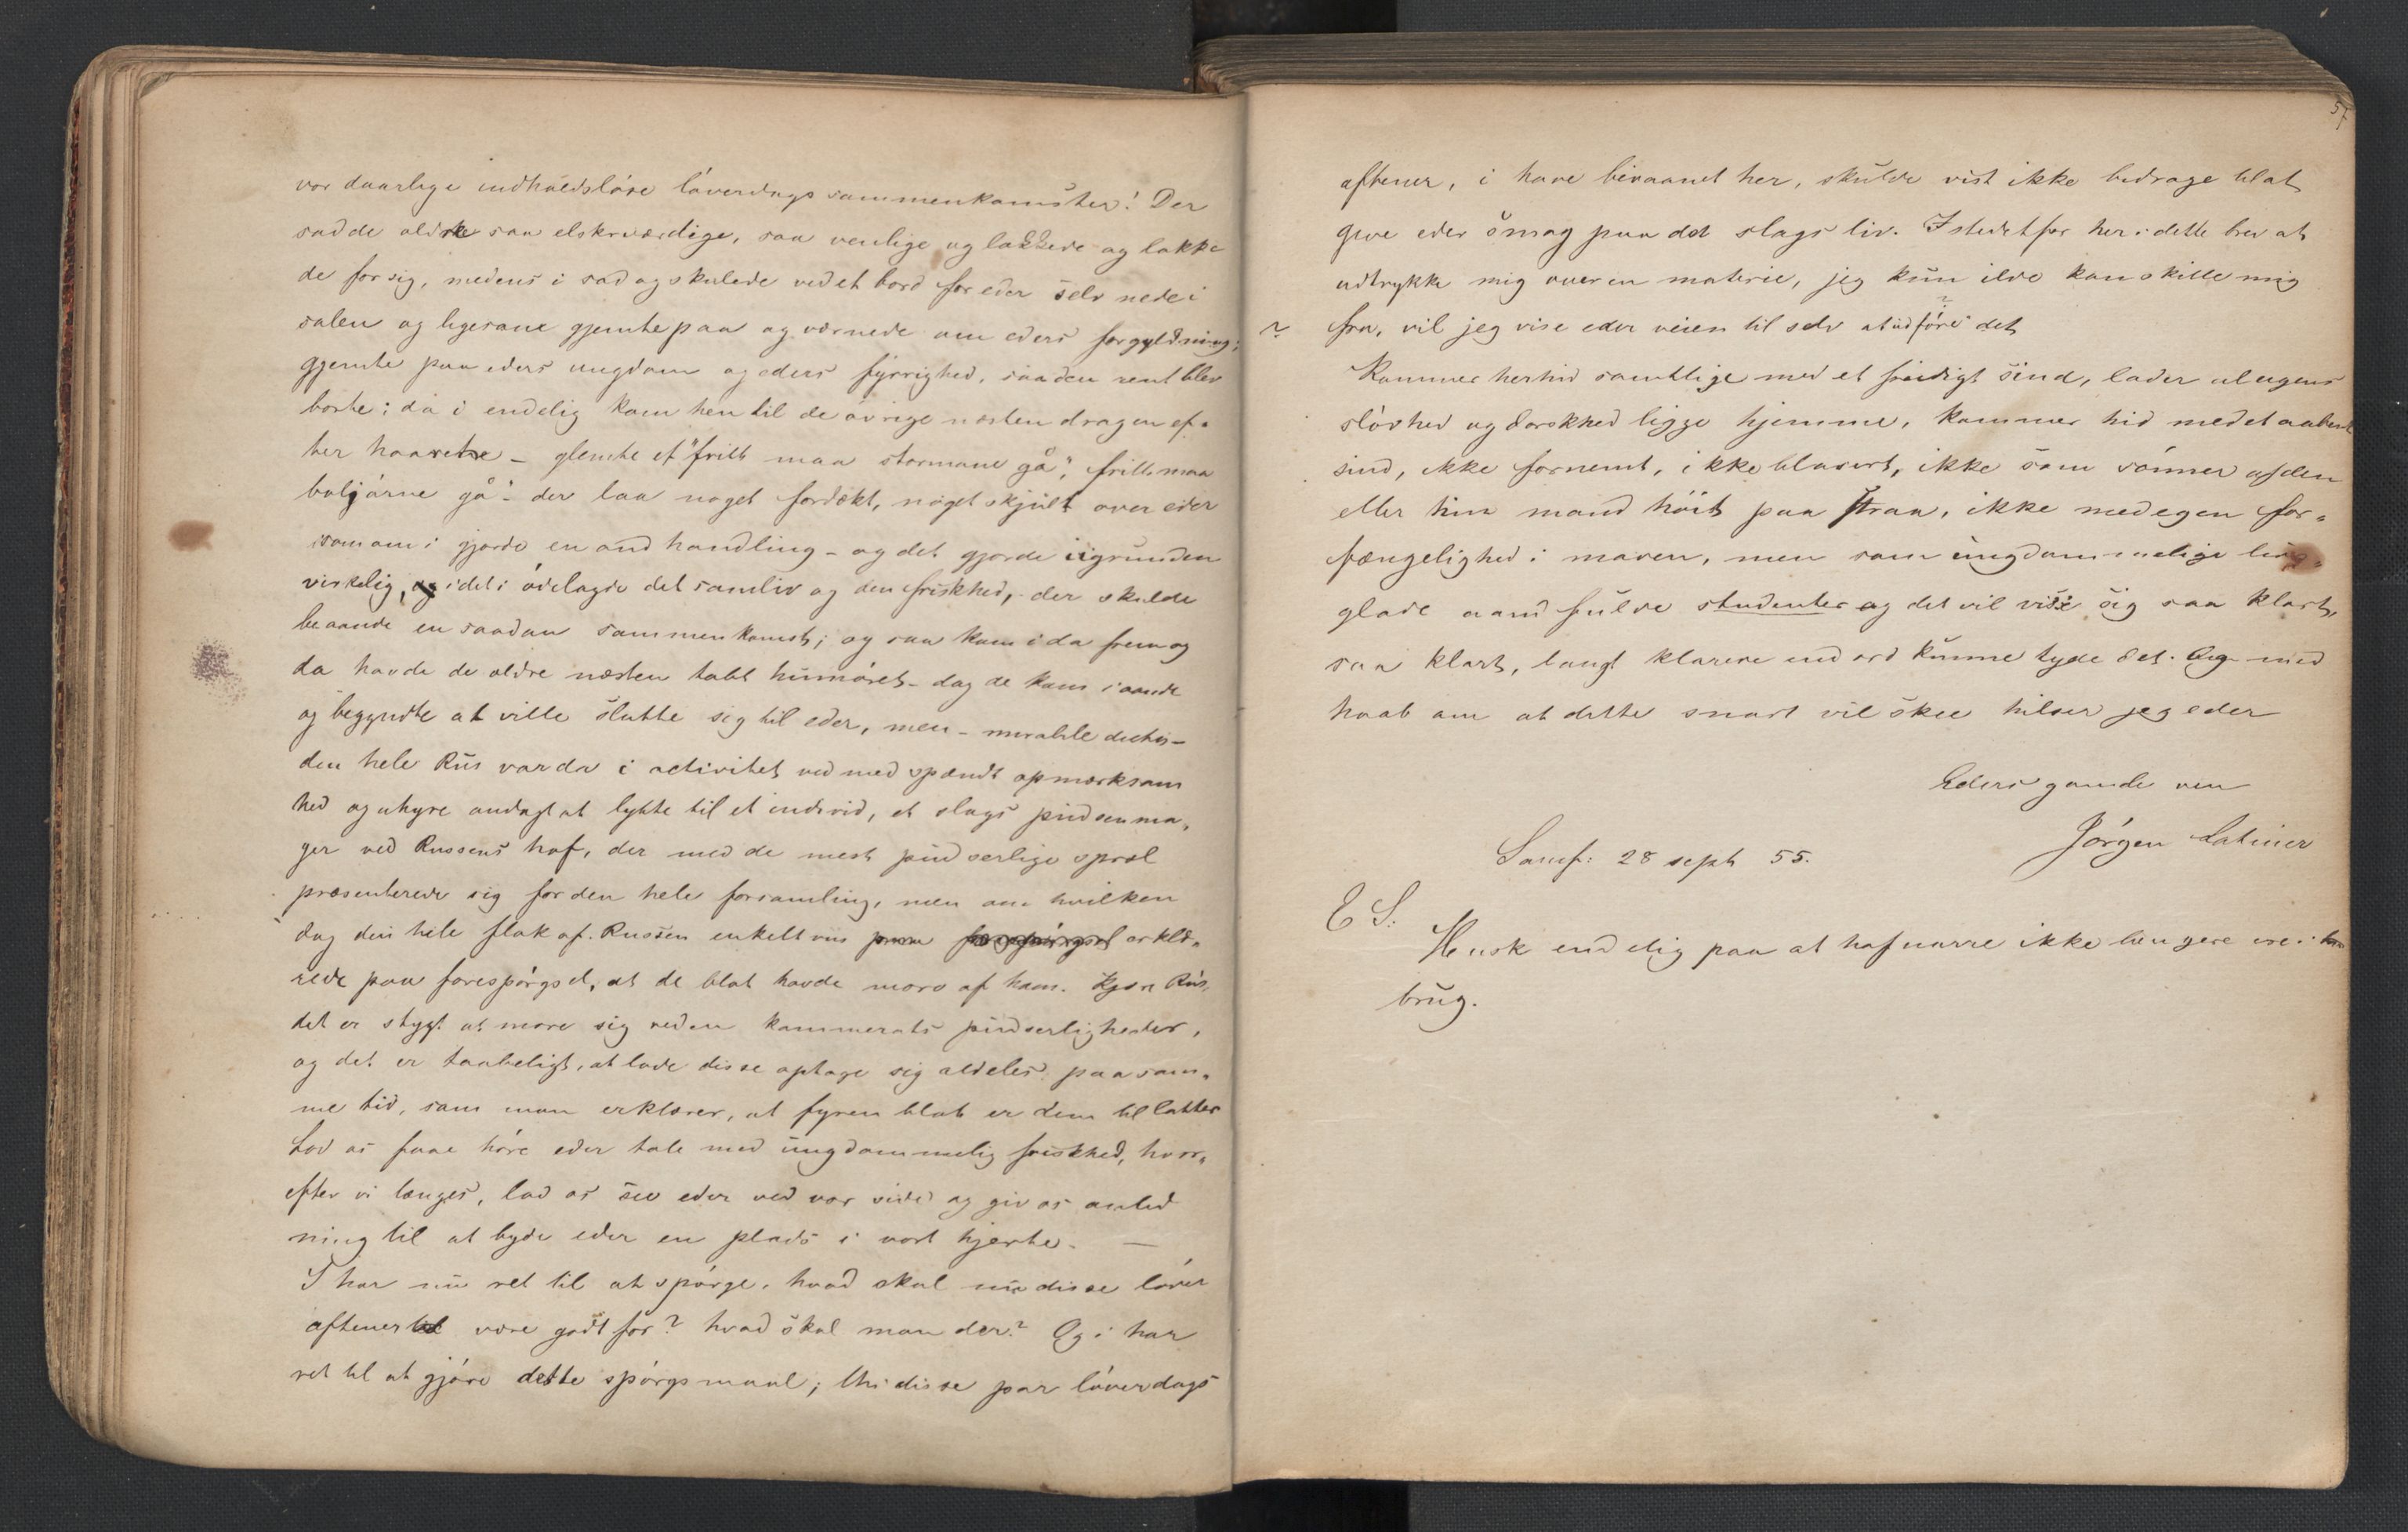 vor daarlige indholdsløse løverdags sammenkomster! Der
sad de aldre saa elskværdige, saa venlige og lakkede og lokke
de for sig, medens i sad og skulede ved et bord for eder selv nede i
salen og ligesom gjemte paa og værnede om eders forgyldning;
gjemte paa eders ungdom og eders fyrrighed, saa den rent blev
borte; da i endelig kom hen til de øvrige næsten dragen ef-
ter haarene – glemte et "frit maa stormane gå", frit maa
bølgjarne gå" – der laa noget fordækt, noget skjult over eder
som om i gjorde en ond handling – og det gjorde i igrunden
virkelig, idet i ødelagde det samliv og den friskhed, der skulde
beaande en saadan sammenkomst; og saa kom i da frem og
da havde de ældre næsten tabt humøret – dog de kom i aande
og begyndte at ville slutte sig til eder, men – mirabile dictu –
den hele Rus var da i activitet ved med spændt opmærksom
hed og uhyre andagt at lytte til et individ, et slags pudsenma-
ger ved Russens hof, der med de mest pudserlige spræl
præsenterede sig for den hele forsamling, men om hvilken
dog den hele flok af Russen enkeltvis erklæ-
rede paa forespørgsel, at de blot havde moro af ham. Kjære Rus,
det er stygt at more sig ved en kammerats pudserligheder,
og det er taabeligt, at lade disse optage sig aldeles paa sam-
me tid, som man erklærer, at fyren blot er dem til latter
Lad os faae høre eder tale med ungdommelig friskhed, hvor-
efter vi længes, lad os see eder ved vor side og giv os anled
ning til at byde eder en plads i vort hjerte. —
I har nu ret til at spørge, hvad skal nu disse løver
aftener være godt for? hvad skal man der? Og i har
ret til at gjøre dette spørgsmaal; thi disse par løverdags
57
aftener, i have bivaanet her, skulde vist ikke bidrage til at
give eder smag paa det slags liv. Istedetfor her i dette brev at
udtrykke mig over en materie, jeg kun ilde kan skille mig
? fra, vil jeg vise eder veien til selv at udføre det
Kommer herhid samtlige med et freidigt sind, lader al egens
sløvhed og dorskhed ligge hjemme, kommer hid med et aabent
sind, ikke fornemt, ikke blasert, ikke som sønner af den
eller hin mand høit paa straa, ikke med egen for-
fængelighed i maven, men som ungdommelige livs-
glade aandfulde studenter og det vil vise sig saa klart,
saa klart, langt klarere end ord kunne tyde det. Og med
haab om at dette snart vil skee hilser jeg eder
Eders gamle ven
Jørgen Latiner
Samf: 28 sept 55.
E S:
Husk endelig paa at hofnarre ikke længere ere i
brug.